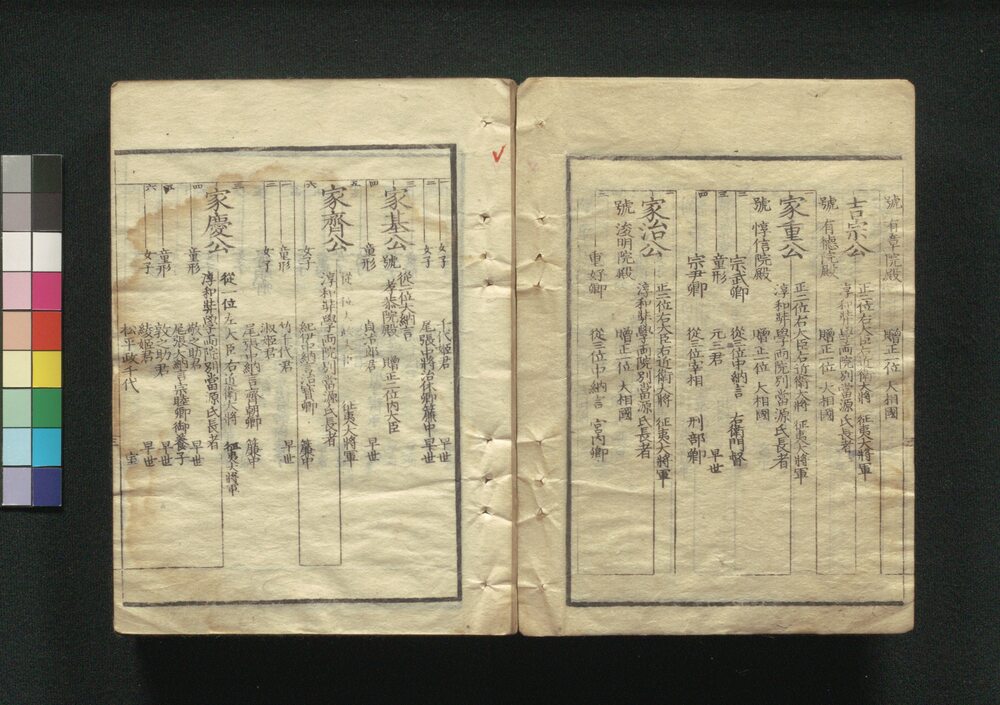 號 有章院殿 贈正一位 大相國
吉宗公 正二位右大臣右近衛大將 征夷大將軍
淳和奨學両院別當源氏長者
號 有德院殿 贈正一位 大相國
家重公 正二位右大臣右近衛大將 征夷大將軍
淳和奘學両院別當源氏長者
號 惇信院殿 贈正一位 大相國
二 宗武卿 從三位中納言 右衛門督
三 童形 元三君 早世
四 宗尹卿 從三位宰相 刑部卿
家治公 正二位右大臣右近衛大將 征夷大將軍
淳和奘學両院別當源氏長者
號 浚明院殿 贈正一位 大相國
二 重好卿 從三位中納言 宮内卿
女子 千代姬君 早世
二 女子 尾張中將治休卿簾中 早世
家基公 從二位大納言
號 孝恭院殿 贈正二位内大臣
四 童形 貞次郎君 早世
家齊公 征夷大將軍
淳和奘學両院別當源氏長者
六 女子 紀伊中納言治寶卿 簾中
一 童形 竹千代君 早世
二 女子 淑姬君 尾張中納言齊朝卿 簾中
家慶公 從一位左大臣右近衛大將 征夷大將軍
淳和奘學両院別當源氏長者
四 童形 敬之助君 早世
尾張大納言宗睦卿御養子
五 童形 敦之助君 早世
六 女子 綾姬君 早世
松平政千代 室